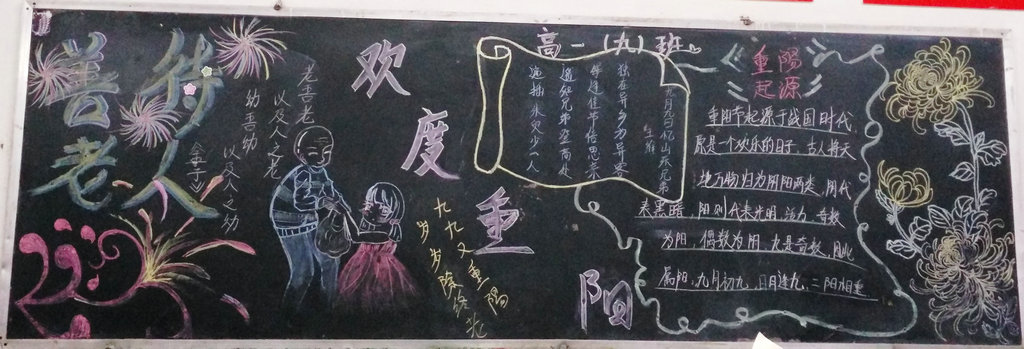 善待
老人
老善老
以及人之老
幼善幼
以及人之幼
欢度重阳
九九又重陽
岁岁
高一(九)班
九月九日忆山东兄弟
王维
独在异乡为异客
每逢佳节倍思亲
遥知兄弟登高处
遍插茱萸少一人
重陽
起源
重阳节起源于战国时代,
原是一个欢乐的日子. 古人将天
地万物归为阴阳两类, 阴代
表黑暗, 阳则代表光明、活力、奇数
为阳, 偶数为阴. 九是奇数, 因此
属阳, 九月初九, 日月逢九, 二阳相重